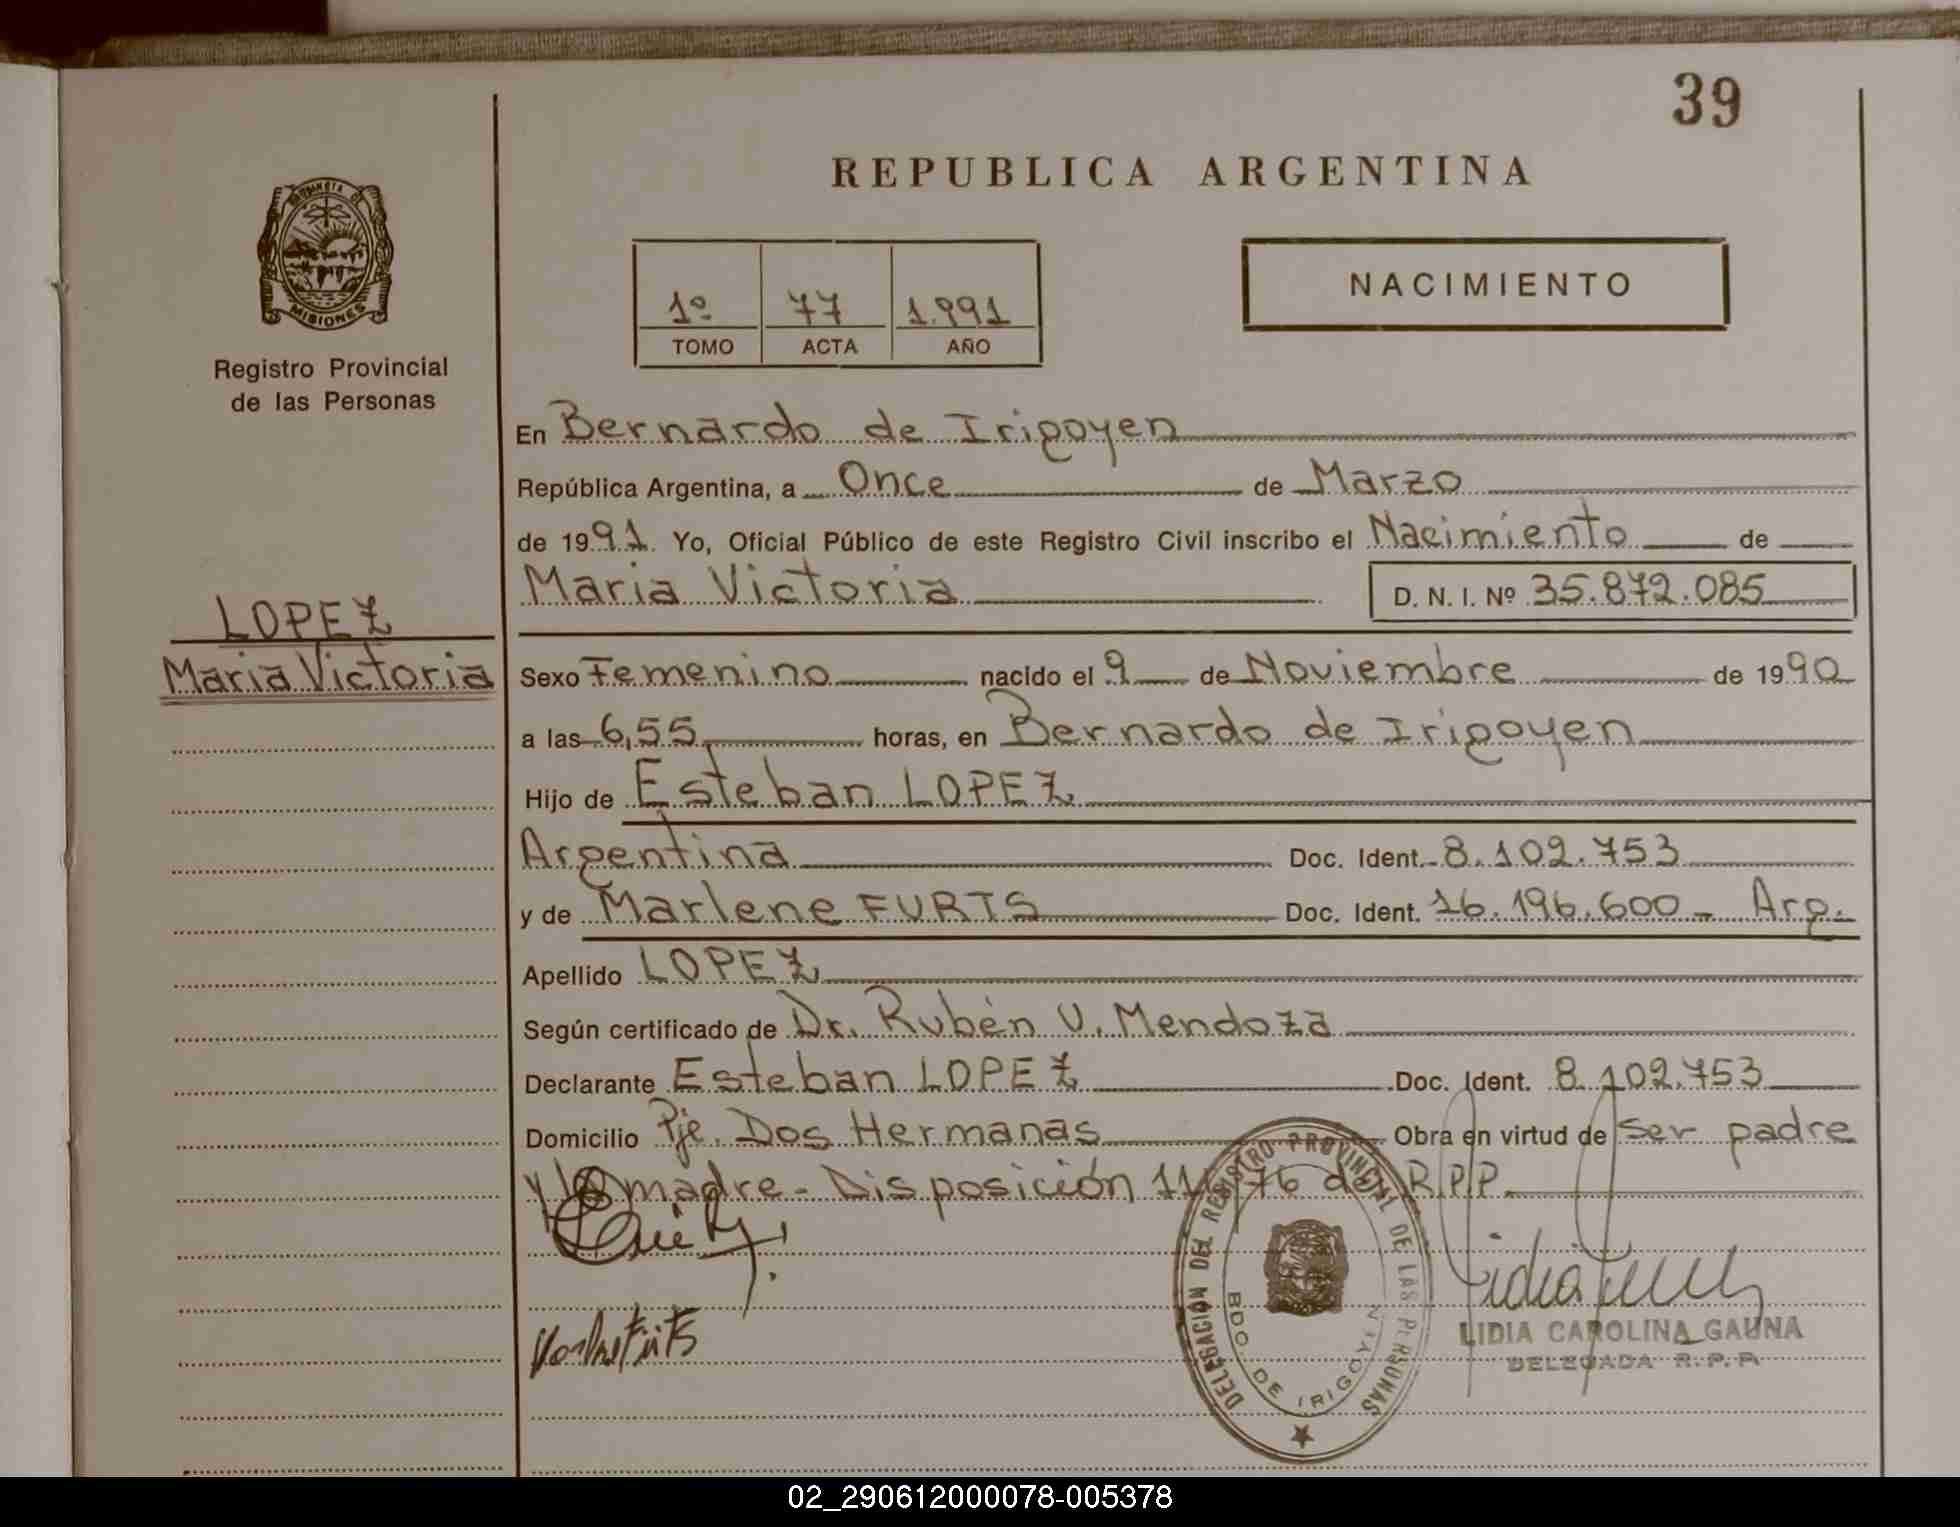 39
REPUBLICA ARGENTINA
MISIONES
Registro Provincial
de las Personas
1º 77 1.991
TOMO ACTA AÑO
NACIMIENTO
En Bernardo de Irigoyen
República Argentina, a Once de Marzo
de 1991. Yo, Oficial Público de este Registro Civil inscribo el Nacimiento de
Maria Victoria D. N. I. Nº 35.872.085
LOPEZ
Maria Victoria
Sexo Femenino nacido el 9 de Noviembre de 1990
a las 6,55 horas, en Bernardo de Irigoyen
Hijo de Esteban LOPEZ
Argentina Doc. Ident. 8.102.753
y de Marlene FURTS Doc. Ident. 16.196.600 - Arg.
Apellido LOPEZ
Según certificado de Dr. Rubén U. Mendoza
Declarante Esteban LOPEZ Doc. Ident. 8.102.753
Domicilio Pje. Dos Hermanas Obra en virtud de ser padre
y la madre - Disposición 11 76 del R.P.P.
DELEGACION DEL REGISTRO PROVINCIAL DE LAS PERSONAS
BDO. DE IRIGOYEN
LIDIA CAROLINA GAUNA
DELEGADA R. P. P.
02_290612000078-005378